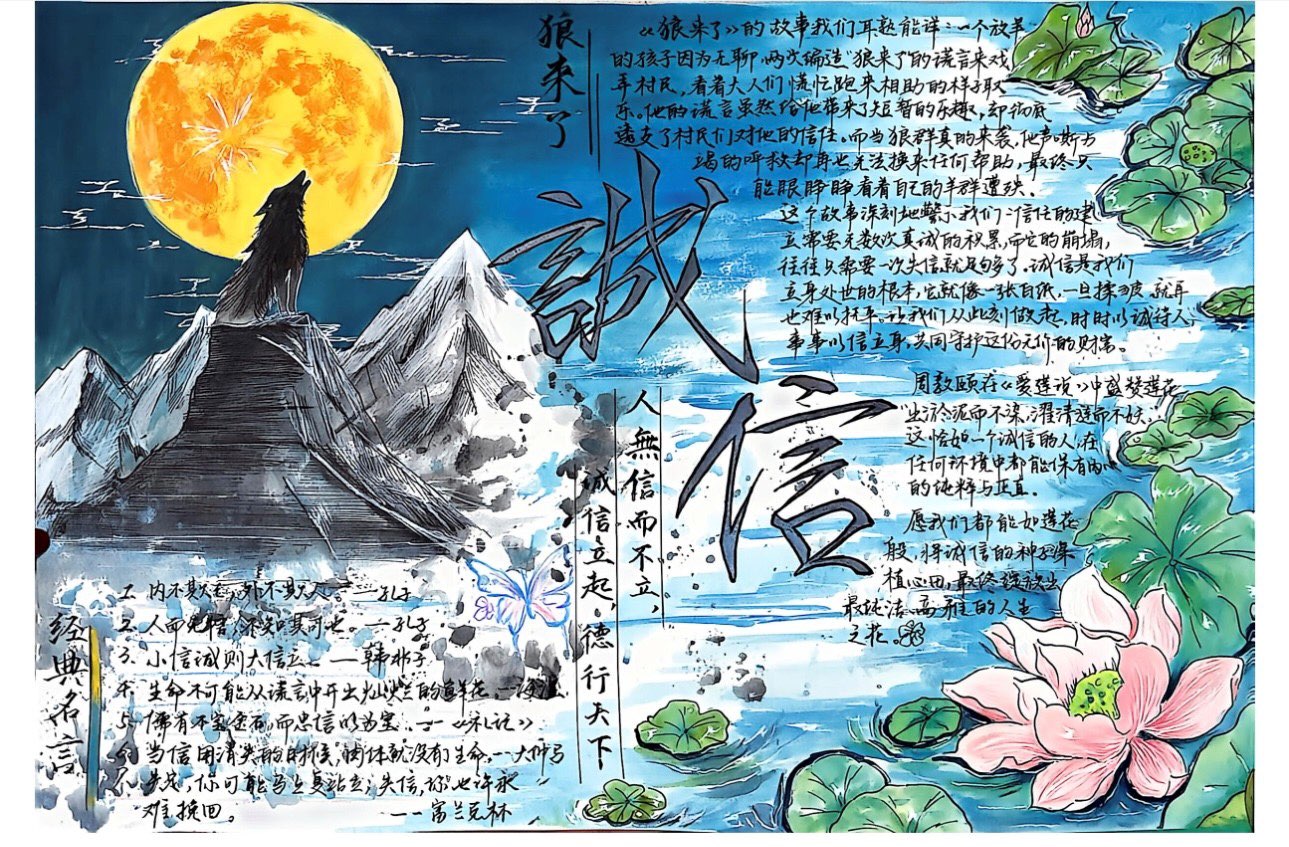 狼来了
《狼来了》的故事我们耳熟能详:一个放羊
的孩子因为无聊,两次编造"狼来了"的谎言来戏
弄村民,看着大人们慌忙跑来相助的样子取
乐。他的谎言虽然给他带来了短暂的乐趣,却彻底
透支了村民们对他的信任。而当狼群真的来袭,他声嘶力
竭的呼救却再也无法换来任何帮助,最终只
能眼睁睁看着自己的羊群遭殃。
这个故事深刻地警示我们:信任的建
立需要无数次真诚的积累,而它的崩塌,
往往只需要一次失信就足够了。诚信是我们
立身处世的根本,它就像一张白纸,一旦揉皱,就再
也难以抚平。让我们从此刻做起,时时以诚待人,
事事以信立身,共同守护这份无价的财富。
誠信
人無信而不立,
诚信立起,德行天下
周敦颐在《爱莲说》中盛赞莲花
"出淤泥而不染,濯清涟而不妖"。
这恰如一个诚信的人,在
任何环境中都能保有内心
的纯粹与正直。
愿我们都能如莲花
般,将诚信的种子深
植心田,最终绽放出
最纯洁、高雅的人生
之花。
经典名言
1. 内不欺己,外不欺人。——孔子
2. 人而无信,不知其可也。—孔子
3. 小信诚则大信立。——韩非子
4. 生命不可能从谎言中开出灿烂的鲜花。
5. 儒有不宝金石,而忠信以为宝。——《礼记》
6. 当信用消失的时候,肉体就没有生命。—大仲马
失足,你可能马上复站立;失信,你也许永
难挽回。 ——富兰克林